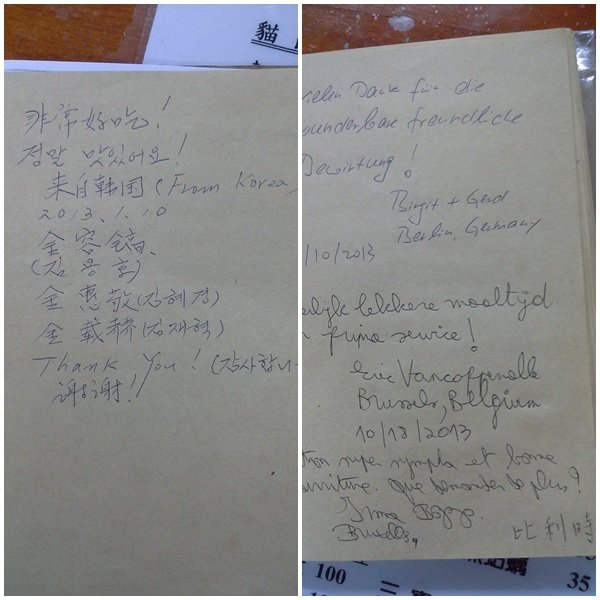 貓
非常好吃!
정말 맛있어요!
来自韩国 (From Korea)
2013.1.10
金容鎬
金惠敬 (김혜경)
金載赫 (김재혁)
Thank you! (감사합니
谢谢!
vielen Dank für die
wunderbare freundliche
Bewirtung!
Birgit + Gerd
Berlin, Germany
/10/2013
lekkere maaltijd
fijne service!
Eric
Brussels, Belgium
10/18/2013
super sympa et bonne
que demander de plus?
Bruxelles,
比利時
100
35